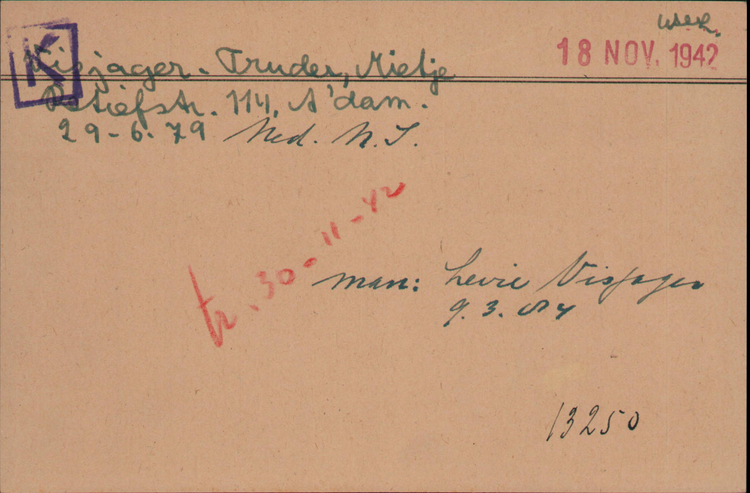 K
Visjager - Truder, Mietje
18 NOV. 1942
Retiefstr. 114, A'dam.
29-6.79 Ned. N.I.
tr. 30-11-42
man: Levie Visjager
9.3.84
13250